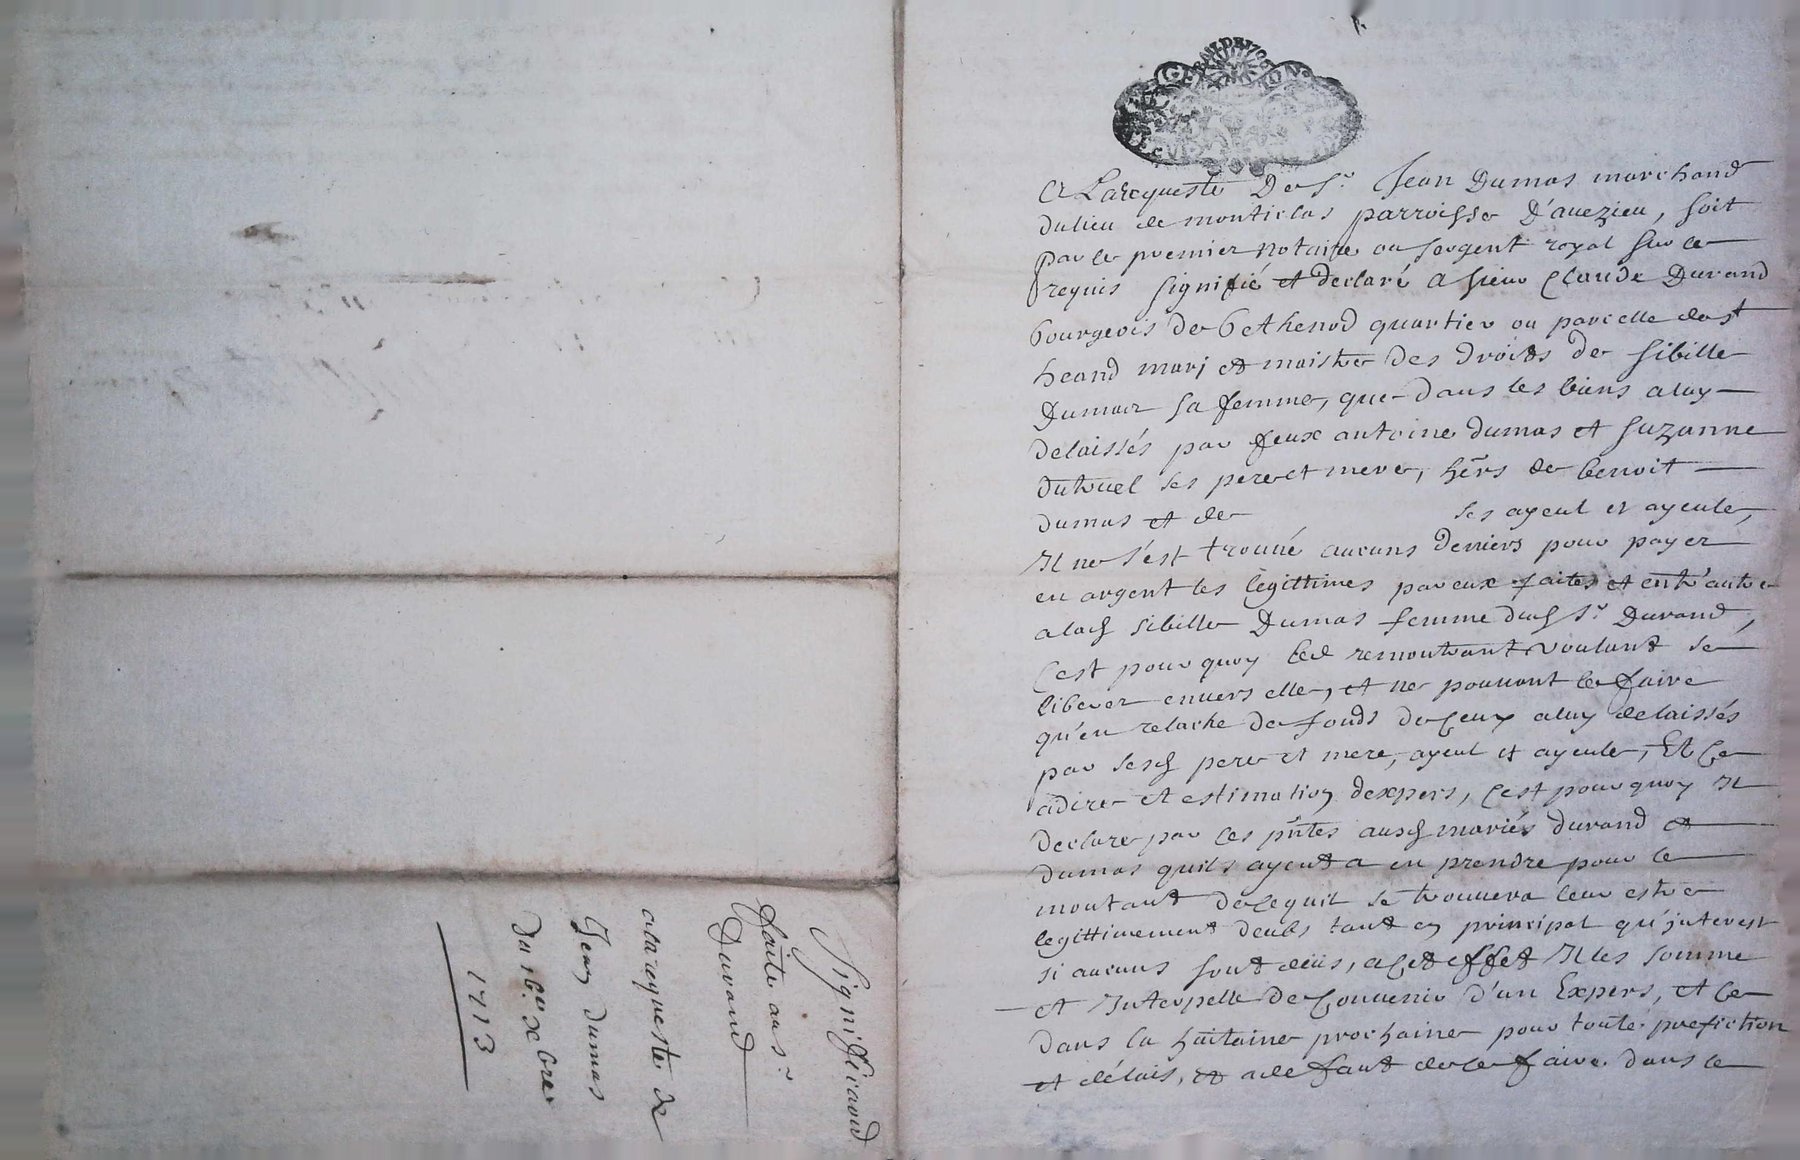 A La requeste De Sr. Jean Dumas marchand
du lieu de monticlas parroisse D'auezieu, soit
par le premier notaire ou sergent royal sur ce
requis signifié et declaré a sieur Claude Durand
bourgeois de bethenod quartier ou parcelle de st
heand mary et maistre des droits de sibille
Dumas sa femme, que dans les biens a luy
delaissés par feux antoine dumas et suzanne
dutreuel ses pere et mere, hers de benoit
dumas et de ses ayeul et ayeule,
Il ne s'est trouué aucuns deniers pour payer
en argent les legittimes par eux faites et entr'autre
a lad sibille Dumas femme dud Sr. Durand,
C'est pourquoy led remontrant voulant se
liberer enuers elle, et ne pouuant le faire
qu'en relache de fonds de ceux a luy delaissés
par sesd pere et mere, ayeul et ayeule, Et ce
a dire et estimation d'expers, c'est pourquoy Il
declare par ces pntes ausd mariés durand et
dumas quils ayent a en prendre pour le
montant de ce quil se trouuera leur estre
legittimement deubs tant en principal qu'interest
si aucuns sont deüs, a cet effet Il les somme
et Interpelle de conuenir d'un Expers, et ce
dans la huitaine prochaine pour toute prefiction
et délais, et a defaut de ce faire dans le
Signifficaon
faite au sr.
Durand
a la requeste de
Jean dumas
Du 16e xbre
1713